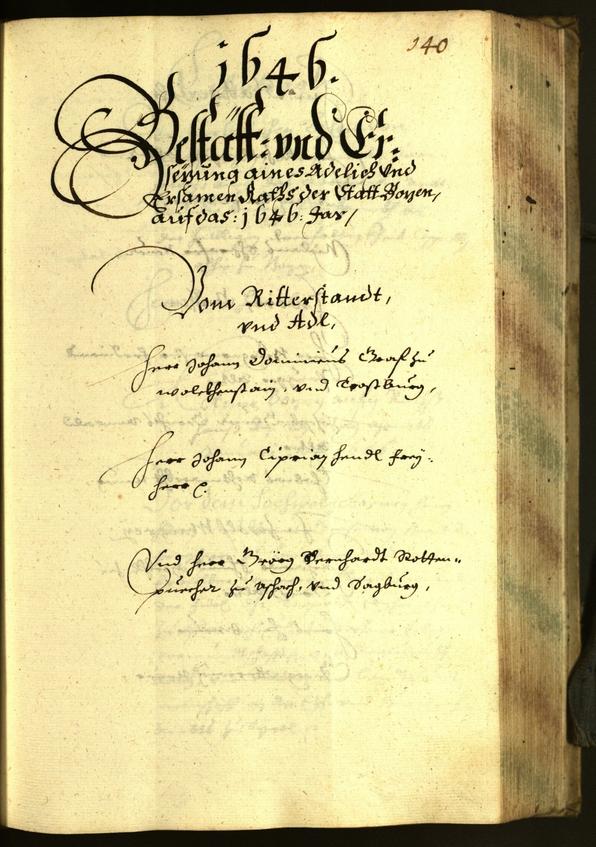 140
1646.
Bestätt: und Er-
sezung aines Adelich und
Ersamen Raths der Statt Bozen,
auf das: 1646: Jar,
Vom Ritterstandt,
und Adl,
Herr Johann Dominicus Graf zu
Wolckhenstain, und Trostburg,
Herr Johann Ciprian Hendl Frey-
herr
Und Herr Geörg Bernhardt Rotten-
puecher zu
und Sagburg,